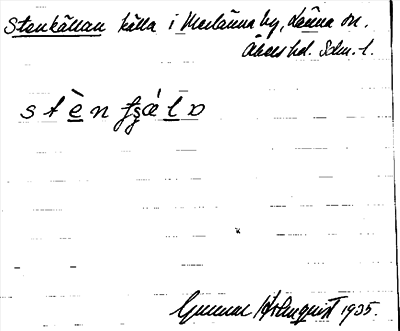 Stenkällan källa i Merlänna by, Länna sn.
Åkers hd. Sdm. l.
s t è n ʄs̨ á l ɒ
Gunnar Holmquist 1935.